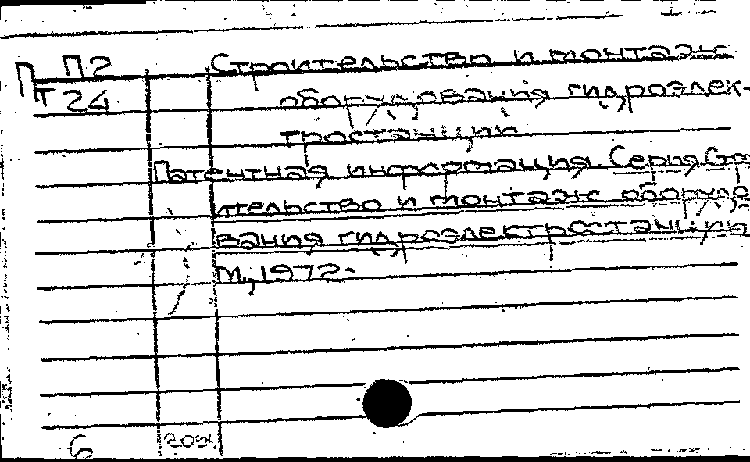 П П2 Строительство и монтаж
Т24 оборудования гидроэлек-
тростанций
Патентная информация. Серия. Стро
ительство и монтаж оборудо
вания гидроэлектростанций
М., 1972-
6